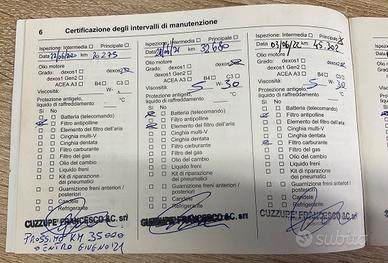 6 Certificazione degli intervalli di manutenzione
Ispezione: Intermedia Principale
Data km 20275
Olio motore
Grado: dexos1 dexos2
dexos1 Gen2
ACEA A3 B4 C3
Viscosità: W-
Protezione antigelo,
liquido di raffreddamento °C
Sì No
Batteria (telecomando)
Filtro antipolline
Elemento del filtro dell'aria
Cinghia multi-V
Cinghia dentata
Filtro carburante
Filtro del gas
Olio del cambio
Liquido freni
Kit di riparazione dei pneumatici
Guarnizione freni anteriori / posteriori
Candele
Refrigerante
CUZZUPE' FRANCESCO &C. srl
PROSSIMO KM 35000
ENTRO GIUGNO 21
Ispezione: Intermedia Principale
Data km 32680
Olio motore
Grado: dexos1
dexos1 Gen2
ACEA A3 B4 C3
Viscosità: 5 W- 30
Protezione antigelo,
liquido di raffreddamento °C
Sì No
Batteria (telecomando)
Filtro antipolline
Elemento del filtro dell'aria
Cinghia multi-V
Cinghia dentata
Filtro carburante
Filtro del gas
Olio del cambio
Liquido freni
Kit di riparazione dei pneumatici
Guarnizione freni anteriori / posteriori
Candele
Refrigerante
CUZZUPE' FRANCESCO &C. srl
Ispezione: Intermedia Principale
Data 03/06/22 km 45.202
Olio motore
Grado: dexos1 dexos2
dexos1 Gen2
ACEA A3 B4 C3
Viscosità: 5 W- 30
Protezione antigelo,
liquido di raffreddamento °C
Sì No
Batteria (telecomando)
Filtro antipolline
Elemento del filtro dell'aria
Cinghia multi-V
Cinghia dentata
Filtro carburante
Filtro del gas
Olio del cambio
Liquido freni
Kit di riparazione dei pneumatici
Guarnizione freni anteriori / posteriori
Candele
Refrigerante
CUZZUPE' FRANCESCO &C. srl
subito